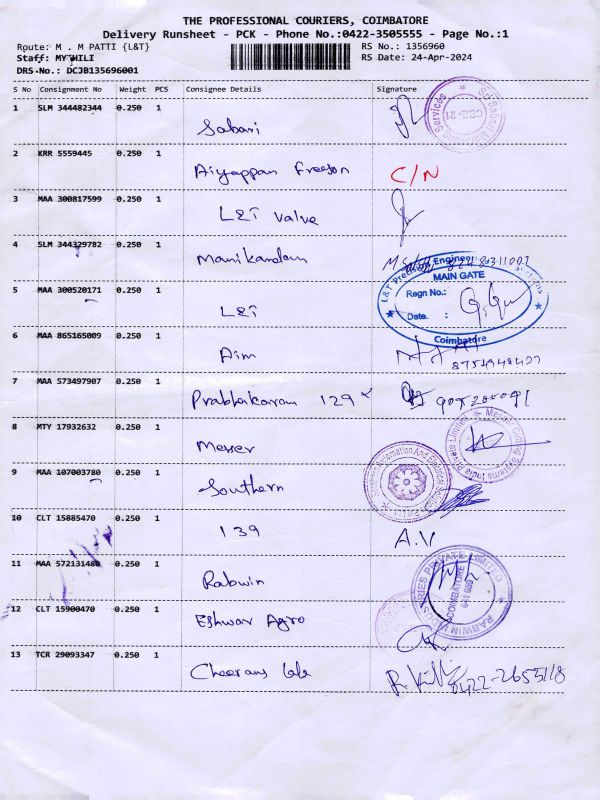 THE PROFESSIONAL COURIERS, COIMBATORE
Delivery Runsheet - PCK - Phone No.:0422-3505555 - Page No.:1
Route: M . M PATTI {L&T} RS No.: 1356960
Staff: RS Date: 24-Apr-2024
DRS No.: DCJB135696001
S No Consignment No Weight PCS Consignee Details Signature
1 SLM 344482344 0.250 1
Sabari
2 KRR 5559445 0.250 1
Aiyappan C/N
3 MAA 300817599 0.250 1
L&T Valve
4 SLM 344329782 0.250 1
Manikandan
5 MAA 300520171 0.250 1
L&T
MAIN GATE
Regn No.:
Date. :
Coimbatore
6 MAA 865165009 0.250 1
Aim
7 MAA 573497907 0.250 1
Prabhakaran 129
8 MTY 17932632 0.250 1
Messer
9 MAA 107003780 0.250 1
Southern
10 CLT 15885470 0.250 1
139 A.V
11 MAA 572131480 0.250 1
Rabwin
RABWIN INDUSTRIES PRIVATE LIMITED
COIMBATORE
12 CLT 15900470 0.250 1
Eshwar Agro
13 TCR 29093347 0.250 1
Cheerans lab